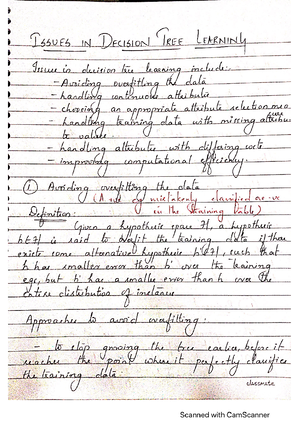 ISSUES IN DECISION TREE LEARNING
Issues in decision tree learning include:
- Avoiding overfitting the data
- handling continuous attributes
- choosing an appropriate attribute selection measure
- handling training data with missing attribute
values
- handling attributes with differing costs
- improving computational efficiency.
① Avoiding overfitting the data
mistakenly classified as -ve
in the training table)
Definition:
Given a hypothesis space H, a hypothesis
h∈H is said to overfit the training data if there
exists some alternative hypothesis h'∈H, such that
h has smaller error than h' over the training
egs, but h' has a smaller error than h over the
entire distribution of instances
Approaches to avoid overfitting:
- to stop growing the tree earlier, before it
reaches the point where it perfectly classifies
the training data.
classmate
Scanned with CamScanner